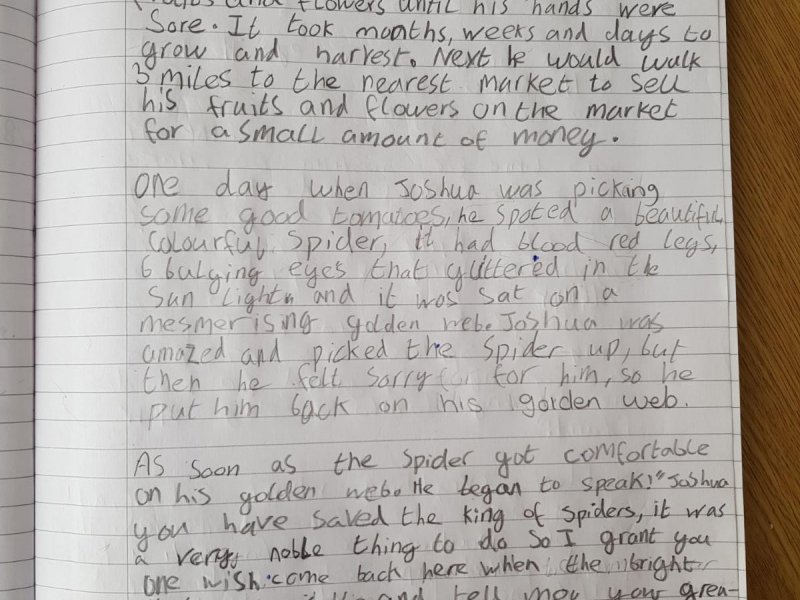 and flowers until his hands were
Sore. It took months, weeks and days to
grow and harvest. Next he would walk
3 miles to the nearest market to sell
his fruits and flowers on the market
for a small amount of money.
One day when Joshua was picking
some good tomatoes, he spoted a beautiful,
colourful spider, it had blood red legs,
6 bulging eyes that glittered in the
sun light and it was sat on a
mesmerising golden web. Joshua was
amazed and picked the spider up, but
then he felt sorry for him, so he
put him back on his golden web.
As soon as the spider got comfortable
on his golden web. He began to speak! "Joshua
you have saved the king of spiders, it was
a very noble thing to do so I grant you
one wish. come back here when the bright
and tell your grea-